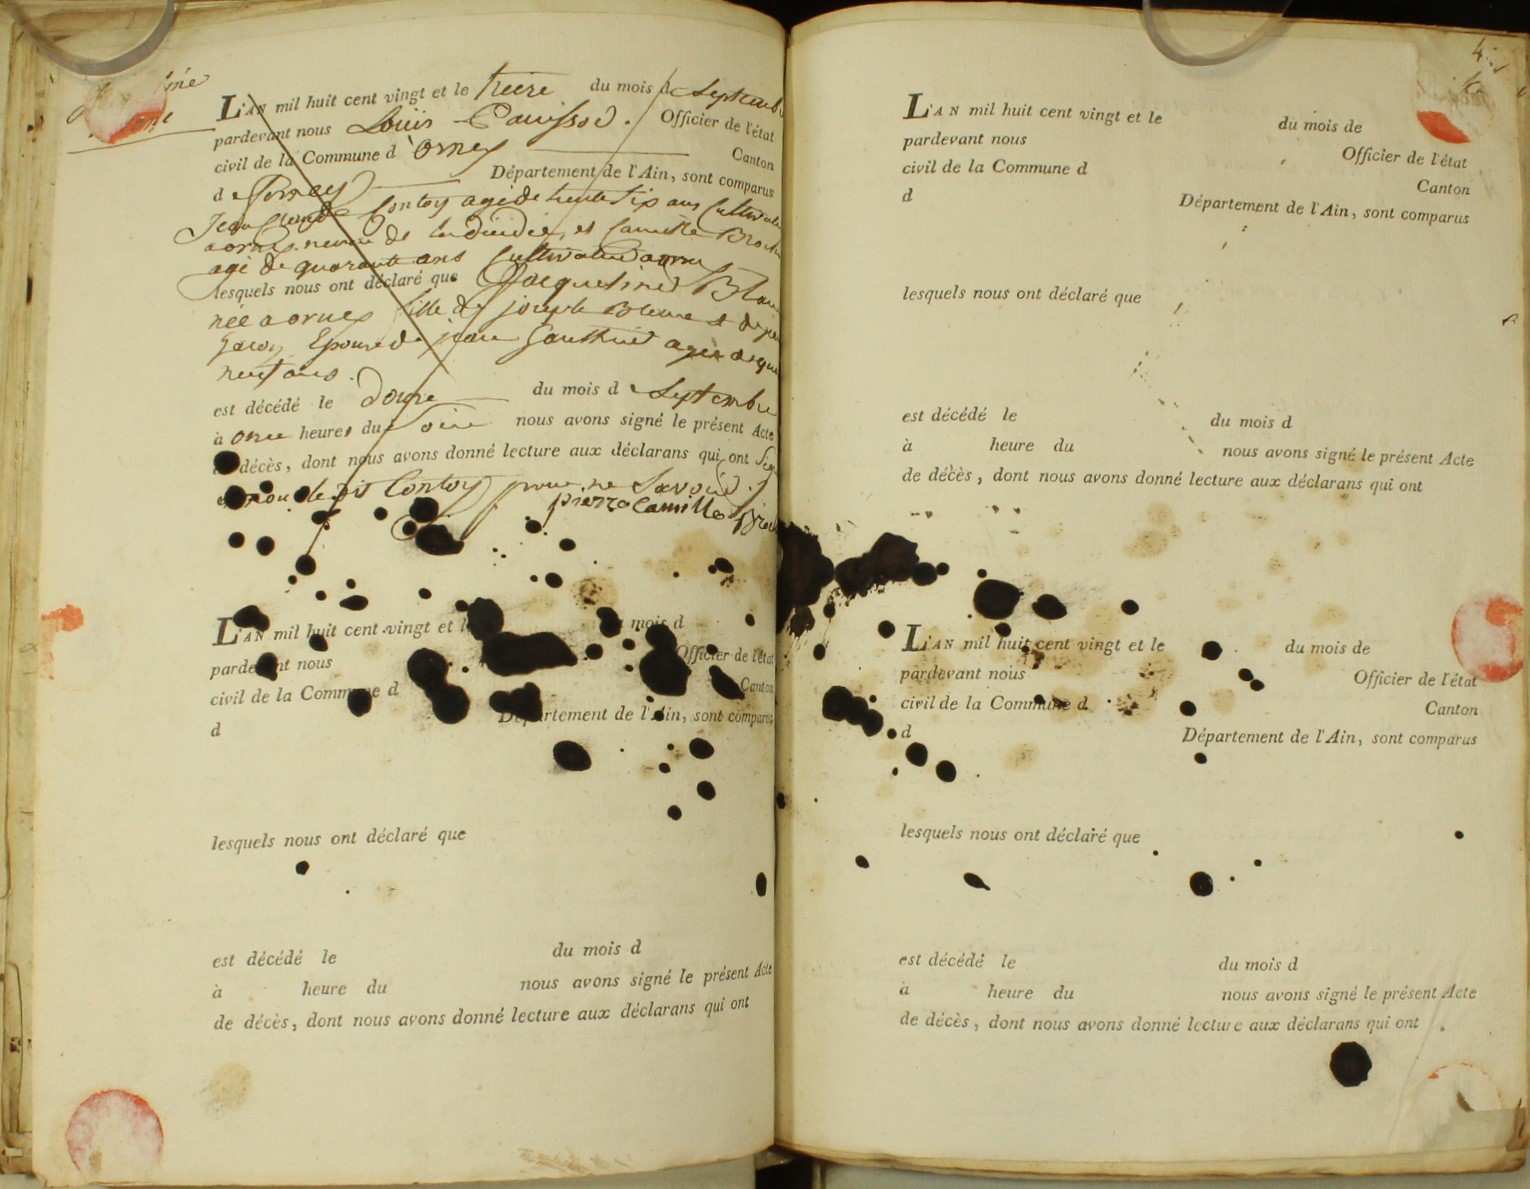 L'AN mil huit cent vingt et le treize du mois d septembre
pardevant nous Louis Officier de l'état
civil de la Commune d'ornex Canton
d Département de l'Ain, sont comparus
Jean Claude Contoy agé de trente six ans Cultivateur
a ornex de la et Camille
agé de quarante ans Cultivateur a ornex
lesquels nous ont déclaré que Jacqueline
née a ornex fille de joseph
Epouse de jean Gauthier agée de
neuf ans.
est décédé le Douze du mois d Septembre
à onze heures du Soir nous avons signé le présent Acte
décès, dont nous avons donné lecture aux déclarans qui ont
non le dit Contoy pour ne Savoir.
pierre Camille
L'AN mil huit cent vingt et le mois d
pardevant nous Officier de l'état
civil de la Commune d Canton
d Département de l'Ain, sont comparus
lesquels nous ont déclaré que
est décédé le du mois d
à heure du nous avons signé le présent Acte
de décès, dont nous avons donné lecture aux déclarans qui ont
4
L'AN mil huit cent vingt et le du mois de
pardevant nous Officier de l'état
civil de la Commune d Canton
d Département de l'Ain, sont comparus
lesquels nous ont déclaré que
est décédé le du mois d
à heure du nous avons signé le présent Acte
de décès, dont nous avons donné lecture aux déclarans qui ont
L'AN mil huit cent vingt et le du mois de
pardevant nous Officier de l'état
civil de la Commune d Canton
d Département de l'Ain, sont comparus
lesquels nous ont déclaré que
est décédé le du mois d
à heure du nous avons signé le présent Acte
de décès, dont nous avons donné lecture aux déclarans qui ont